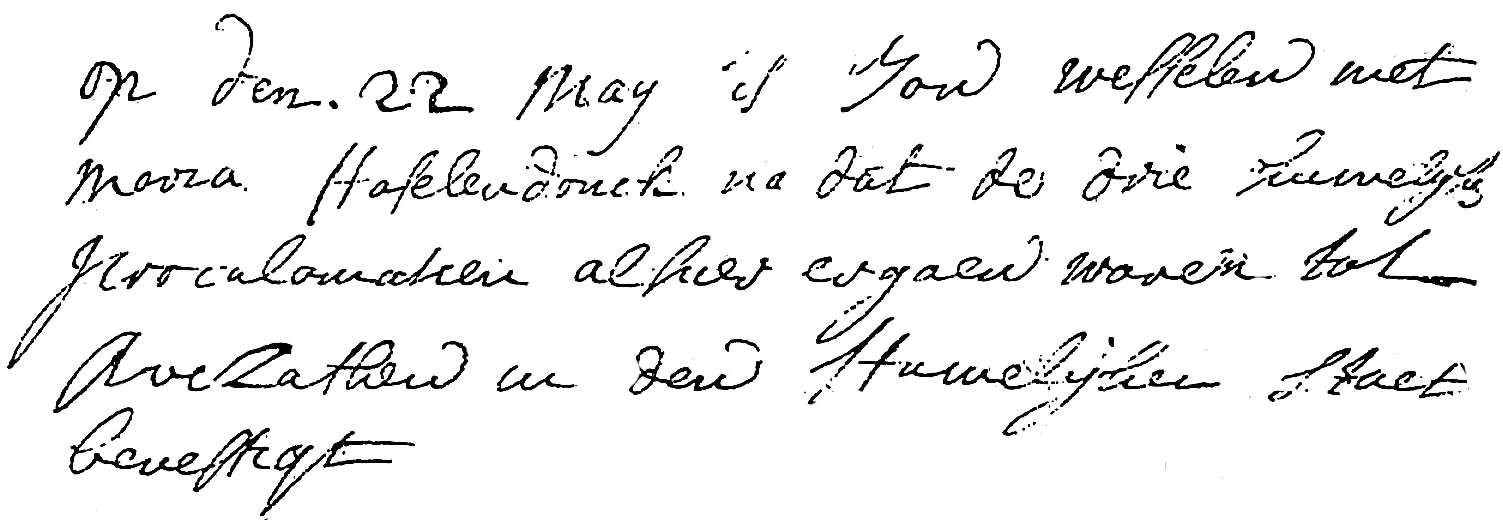 op den. 22 May is Jan wesselen met
Maria Hasselendonck na dat de drie huwelyks
proculamatien alhier ergaen waren tot
Avezathen in den Huwelijken Staet
bevestigt